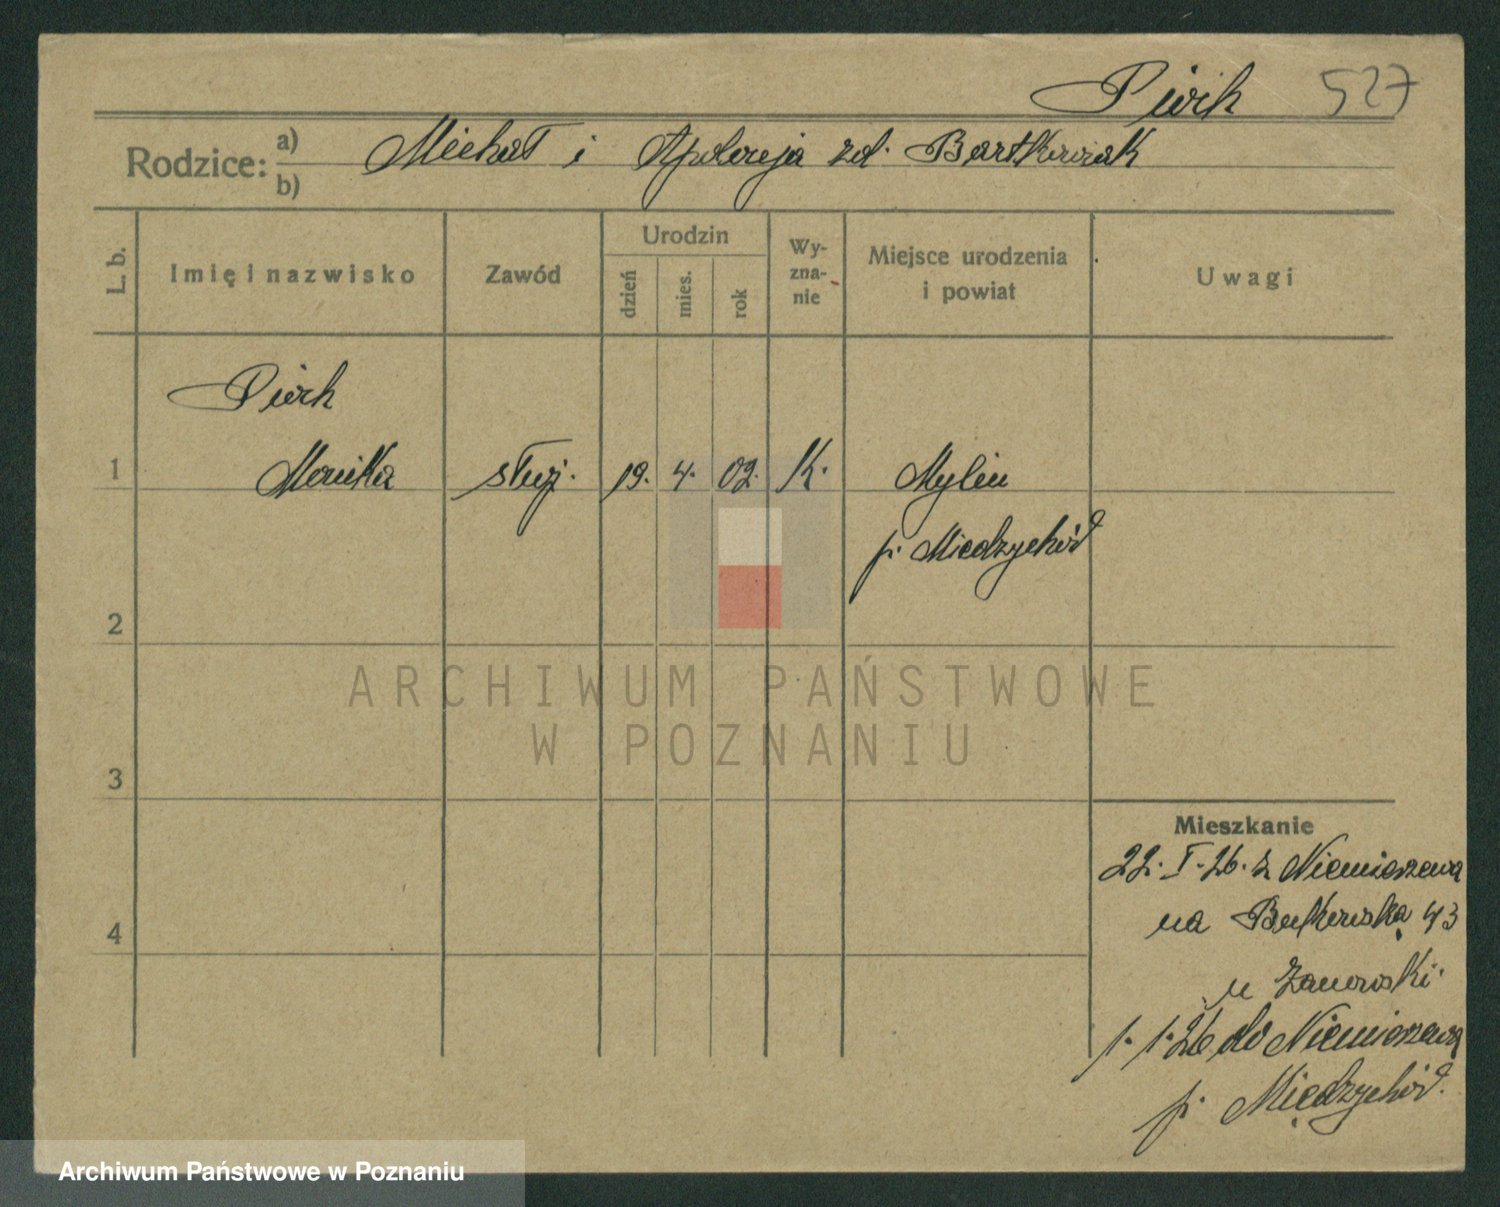 Piork 527
Rodzice: a) b) Michał i Apolonja zd. Bartkowiak
L. b. Imię i nazwisko Zawód Urodzin dzień mies. rok Wy-zna-nie Miejsce urodzenia i powiat Uwagi
Piork
1 Monika służ. 19. 4. 02. K. Mylin
p. Miedzychód
2
ARCHIWUM PAŃSTWOWE
W POZNANIU
3
Mieszkanie
22. I. 26. z Niemierzewa
4 na Bukowską 43
u Zanowski
1. 1. 26 do Niemierzewa
p. Międzychód.
Archiwum Państwowe w Poznaniu